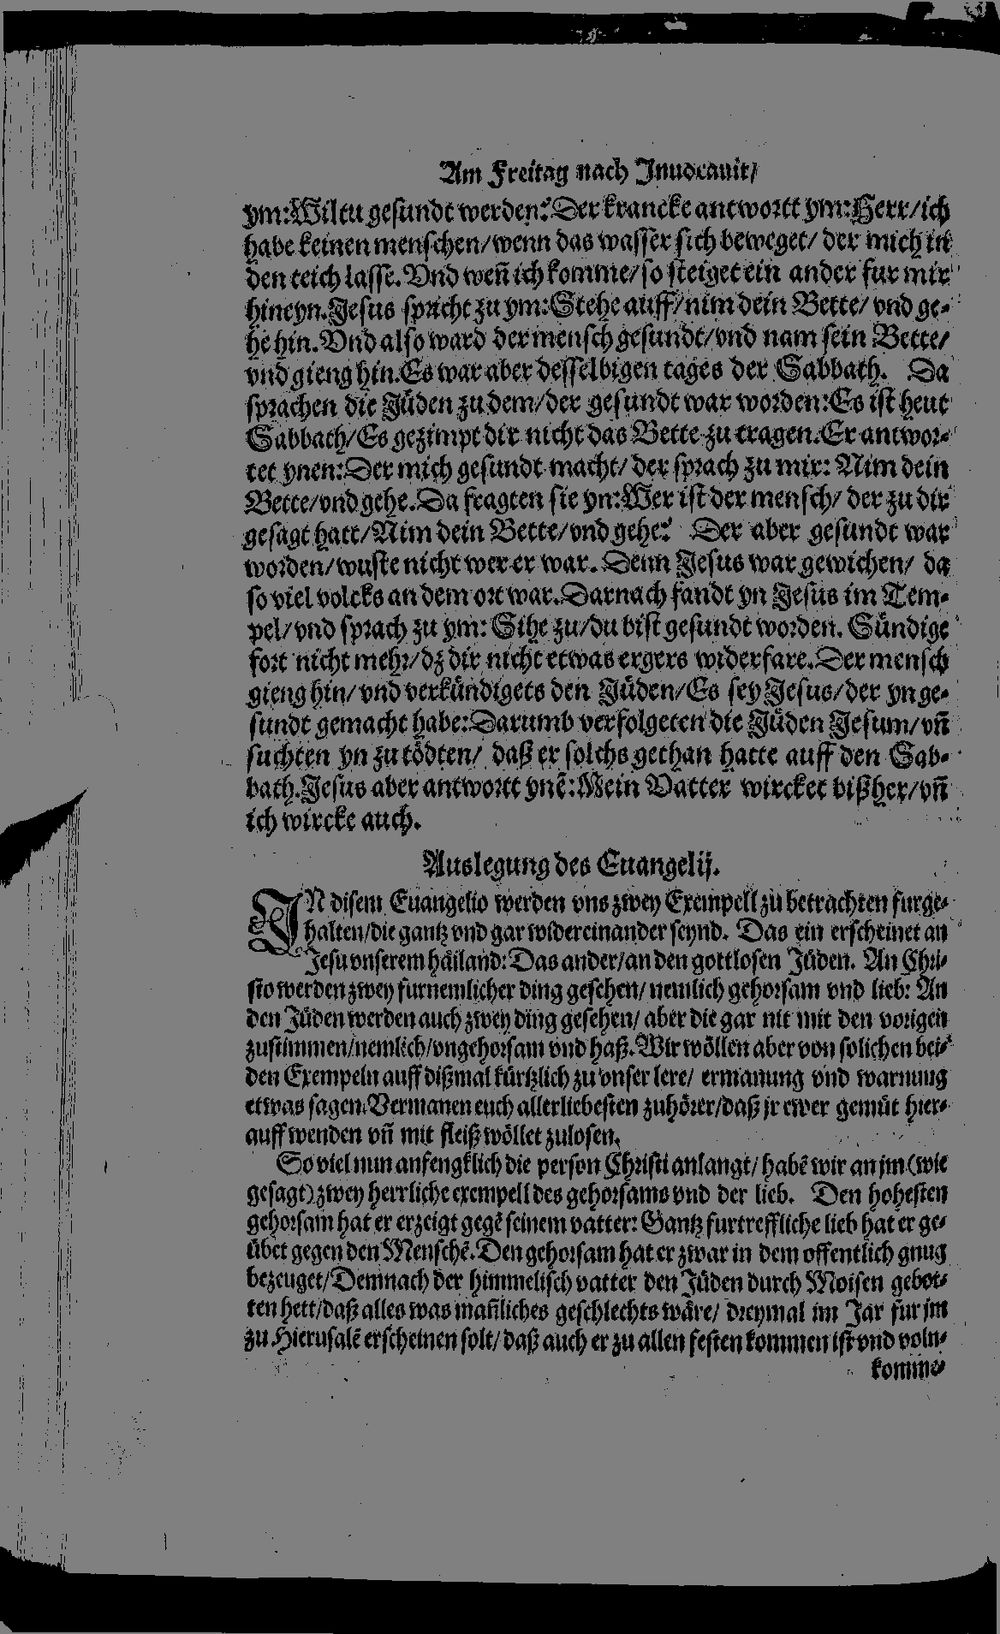 Am Freitag nach Inuocauit/
ym: Wiltu gesundt werden? Der krancke antwortt ym: Herr/ ich
habe keinen menschen/ wenn das wasser sich beweget/ der mich in
den teich lasse. Vnd weñ ich komme/ so steiget ein ander fur mir
hineyn. Jesus spricht zu ym: Stehe auff/ nim dein Bette/ vnd ge-
he hin. Vnd also ward der mensch gesundt/ vnd nam sein Bette/
vnd gieng hin. Es war aber desselbigen tages der Sabbath. Da
sprachen die Jüden zu dem/ der gesundt war worden: Es ist heut
Sabbath/ Es gezimpt dir nicht das Bette zu tragen. Er antwor-
tet ynen: Der mich gesundt macht/ der sprach zu mir: Nim dein
Bette/ vnd gehe. Da fragten sie yn: Wer ist der mensch/ der zu dir
gesagt hatt/ Nim dein Bette/ vnd gehe? Der aber gesundt war
worden/ wuste nicht wer er war. Denn Jesus war gewichen/ da
so viel volcks an dem ort war. Darnach fandt yn Jesus im Tem-
pel/ vnd sprach zu ym: Sihe zu/ du bist gesundt worden. Sündige
fort nicht mehr/ dz dir nicht etwas ergers widerfare. Der mensch
gieng hin/ vnd verkündigets den Jüden/ Es sey Jesus/ der yn ge-
sundt gemacht habe: Darumb verfolgeten die Jüden Jesum/ vñ
suchten yn zu tödten/ daß er solchs gethan hatte auff den Sab-
bath. Jesus aber antwortt ynẽ: Mein Vatter wircket bißher/ vñ
ich wircke auch.
Auslegung des Euangelij.
IN disem Euangelio werden vns zwey Exempell zu betrachten furge-
halten/ die gantz vnd gar widereinander seynd. Das ein erscheinet an
Jesu vnserem häiland: Das ander/ an den gottlosen Jüden. An Chri-
sto werden zwey furnemlicher ding gesehen/ nemlich gehorsam vnd lieb: An
den Jüden werden auch zwey ding gesehen/ aber die gar nit mit den vorigen
zustimmen/ nemlich/ vngehorsam vnd haß. Wir wöllen aber von solichen bei-
den Exempeln auff dißmal kürtzlich zu vnser lere/ ermanung vnd warnung
etwas sagen. Vermanen euch allerliebesten zuhörer/ daß jr ewer gemüt hier-
auff wenden vñ mit fleiß wöllet zulosen.
So viel nun anfengklich die person Christi anlangt/ habẽ wir an jm (wie
gesagt) zwey herrliche exempell des gehorsams vnd der lieb. Den hohesten
gehorsam hat er erzeigt gegẽ seinem vatter: Gantz furtreffliche lieb hat er ge-
übet gegen den Menschẽ. Den gehorsam hat er zwar in dem offentlich gnug
bezeuget/ Demnach der himmelisch vatter den Jüden durch Moisen gebot-
ten hett/ daß alles was mañliches geschlechts wäre/ dreymal im Jar fur jm
zu Hierusalẽ erscheinen solt/ daß auch er zu allen festen kommen ist vnd voln-
komme-